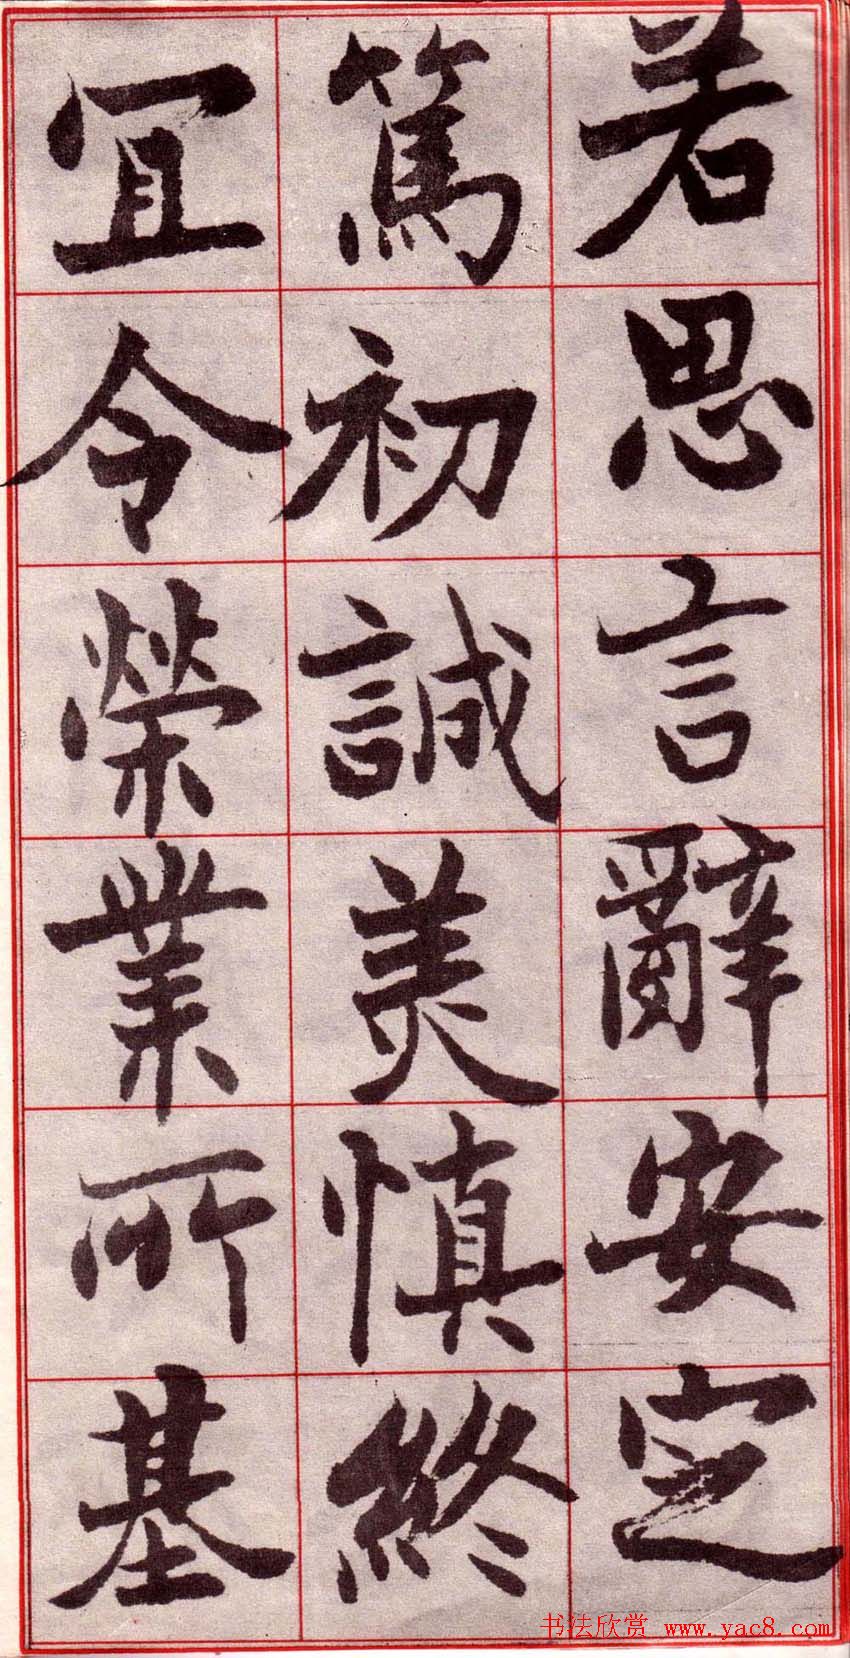 若思言辭安定
篤初誠美慎終
宜令榮業所基
书法欣赏 www.yac8.com